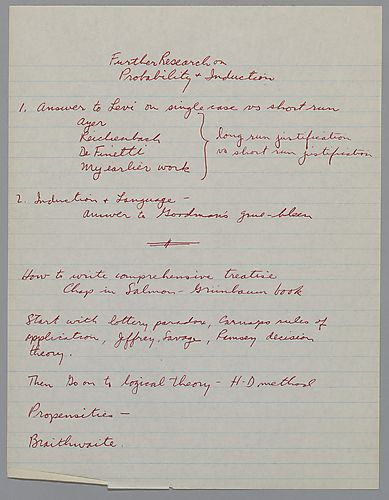 Further Research on
Probability + Induction
1. Answer to Levi on single case vs short run
Ayer
Reichenbach
De Finetti
My earlier work
long run justification
vs short run justification
2. Induction + Language -
answer to Goodman's grue-bleen
How to write comprehensive treatise
Chap in Salmon - Grünbaum book
Start with lottery paradox, Carnaps rules of
application, Jeffrey, Savage, Ramsey decision
theory.
Then Go on to logical theory - H-D method
Propensities -
Braithwaite.